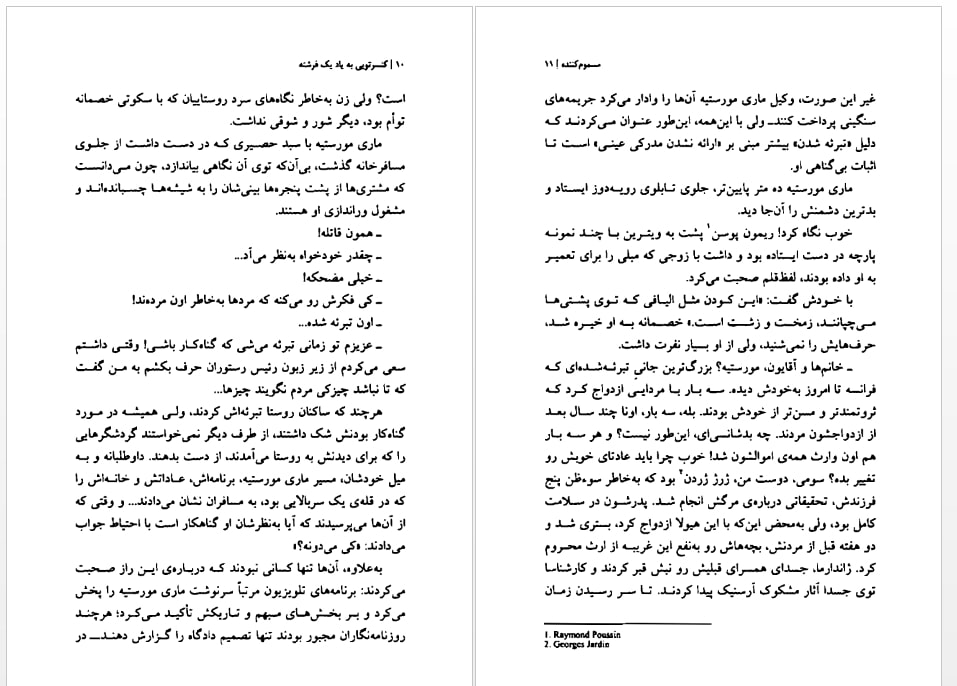 ۱۰ | کنسرتویی به یاد یک فرشته
است؟ ولی زن به‌خاطر نگاه‌های سرد روستاییان که با سکوتی خصمانه
توأم بود، دیگر شور و شوقی نداشت.
ماری مورستیه با سبد حصیری که در دست داشت از جلوی
مسافرخانه گذشت، بی‌آن‌که توی آن نگاهی بیاندازد، چون می‌دانست
که مشتری‌ها از پشت پنجره‌ها بینی‌شان را به شیشه‌ها چسبانده‌اند و
مشغول وراندازی او هستند.
ـ همون قاتله!
ـ چقدر خودخواه به‌نظر می‌آد...
ـ خیلی مضحکه!
ـ کی فکرش رو می‌کنه که مردها به‌خاطر اون مرده‌ند!
ـ اون تبرئه شده...
ـ عزیزم تو زمانی تبرئه می‌شی که گناه‌کار باشی! وقتی داشتم
سعی می‌کردم از زیر زبون رئیس رستوران حرف بکشم به من گفت
که تا نباشد چیزکی مردم نگویند چیزها...
هرچند که ساکنان روستا تبرئه‌اش کردند، ولی همیشه در مورد
گناه‌کار بودنش شک داشتند، از طرف دیگر نمی‌خواستند گردشگرهایی
را که برای دیدنش به روستا می‌آمدند، از دست بدهند. داوطلبانه و به
میل خودشان، مسیر ماری مورستیه، برنامه‌اش، عاداتش و خانه‌اش را
که در قله‌ی یک سربالایی بود، به مسافران نشان می‌دادند... و وقتی که
از آن‌ها می‌پرسیدند که آیا به‌نظرشان او گناهکار است با احتیاط جواب
می‌دادند: «کی می‌دونه؟»
به‌علاوه، آن‌ها تنها کسانی نبودند که درباره‌ی این راز صحبت
می‌کردند: برنامه‌های تلویزیون مرتباً سرنوشت ماری مورستیه را پخش
می‌کرد و بر بخش‌های مبهم و تاریکش تأکید می‌کرد؛ هرچند
روزنامه‌نگاران مجبور بودند تنها تصمیم دادگاه را گزارش دهند ـــ در
مسموم‌کننده | ۱۱
غیر این صورت، وکیل ماری مورستیه آن‌ها را وادار می‌کرد جریمه‌های
سنگینی پرداخت کنند ـ ولی با این‌همه، این‌طور عنوان می‌کردند که
دلیل «تبرئه شدن» بیشتر مبنی بر «ارائه نشدن مدرکی عینی» است تا
اثبات بی‌گناهی او.
ماری مورستیه ده متر پایین‌تر، جلوی تابلوی رویه‌دوز ایستاد و
بدترین دشمنش را آن‌جا دید.
خوب نگاه کرد! ریمون پوسن۱ پشت به ویترین با چند نمونه
پارچه در دست ایستاده بود و داشت با زوجی که مبلی را برای تعمیر
به او داده بودند، لفظ‌قلم صحبت می‌کرد.
با خودش گفت: «این کودن مثل الیافی که توی پشتی‌ها
می‌چپاننـد، زمخت و زشت است.» خصمانه به او خیره شد،
حرف‌هایش را نمی‌شنید، ولی از او بسیار نفرت داشت.
ـ خانم‌ها و آقایون، مورستیه؟ بزرگ‌ترین جانیِ تبرئه‌شده‌ای که
فرانسه تا امروز به‌خودش دیده. سه بار با مردایی ازدواج کرد که
ثروتمندتر و مسن‌تر از خودش بودند. بله، سه بار، اونا چند سال بعد
از ازدواجشون مردند. چه بدشانسی‌ای، این‌طور نیست؟ و هر سه بار
هم اون وارث همه‌ی اموالشون شد! خوب چرا باید عادتای خویش رو
تغییر بده؟ سومی، دوست من، ژرژ ژردن۲ بود که به‌خاطر سوءظن پنج
فرزندش، تحقیقاتی درباره‌ی مرگش انجام شد. پدرشون در سلامت
کامل بود، ولی به‌محض این‌که با این هیولا ازدواج کرد، بستری شد و
دو هفته قبل از مردنش، بچه‌هاش رو به‌نفع این غریبه از ارث محروم
کرد. ژاندارما، جسدای همسرای قبلیش رو نبش قبر کردند و کارشناسا
توی جسدا آثار مشکوک آرسنیک پیدا کردند. تا سر رسیدن زمان
1. Raymond Poussin
2. Georges Jardin